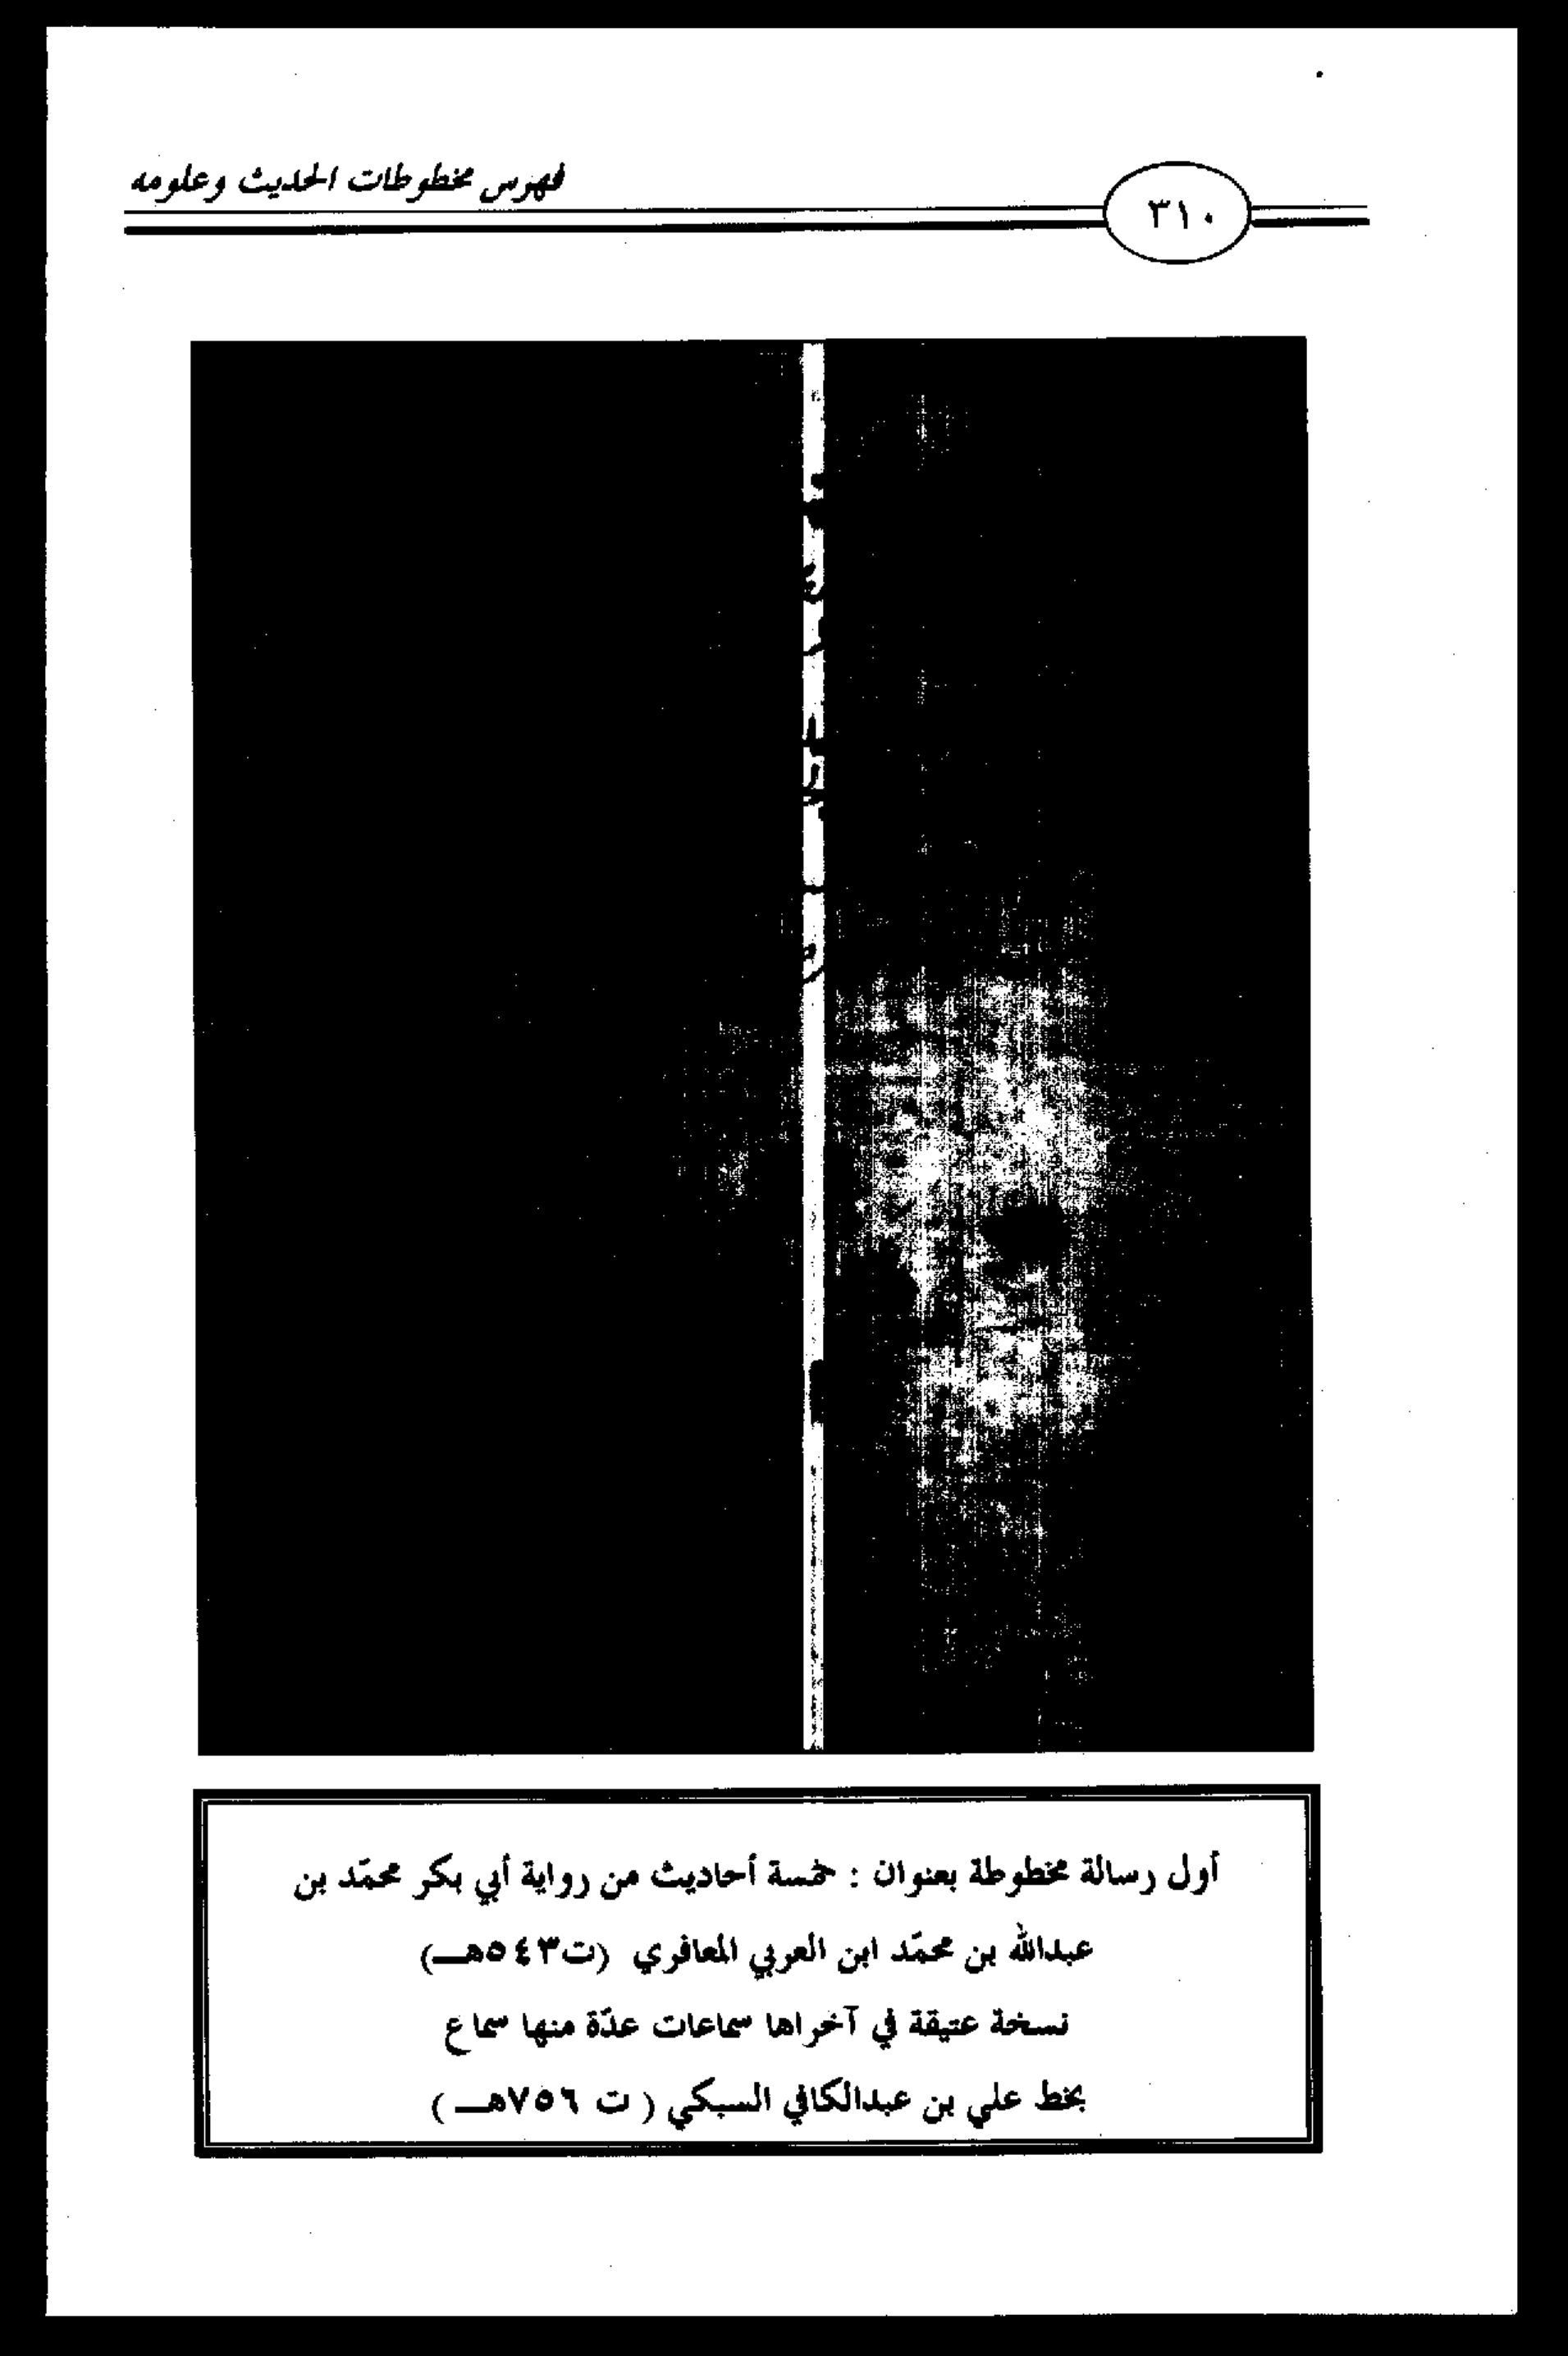 فهرس مخطوطات الحديث وعلومه
٣١٠
أول رسالة مخطوطة بعنوان : خمسة أحاديث من رواية أبي بكر محمّد بن
عبدالله بن محمّد ابن العربي المعافري (ت٥٤٣هـ)
نسخة عتيقة في آخراها سماعات عدّة منها سماع
بخط علي بن عبدالكافي السبكي ( ت ٧٥٦هـ )